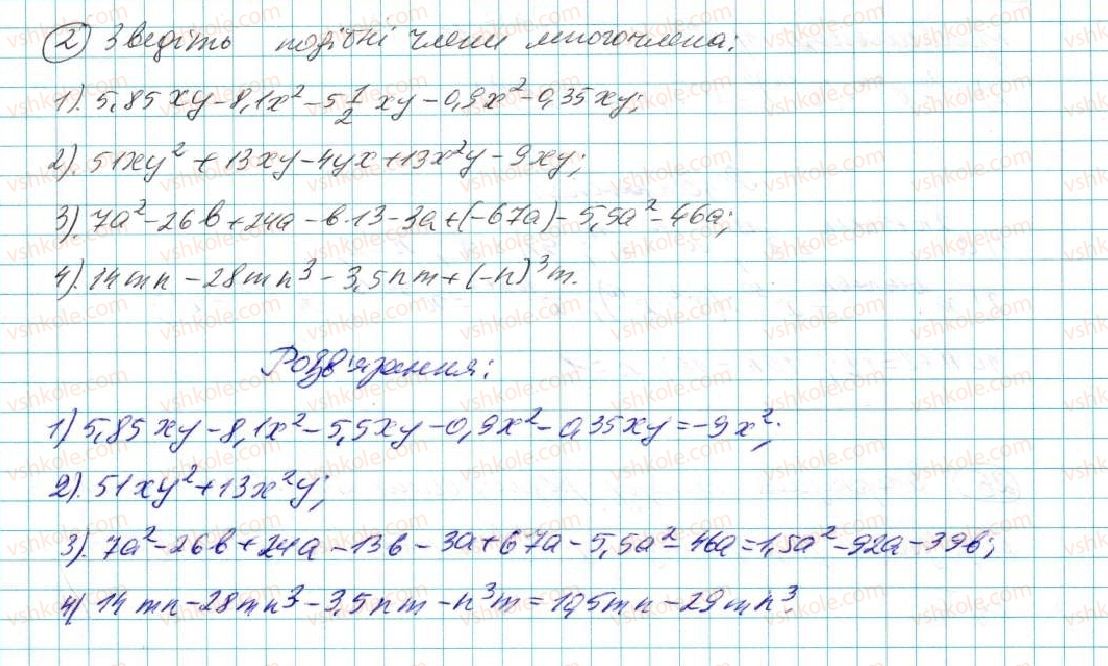 2) Зведіть подібні члени многочлена:
1). 5,85xy-8,1x²-5 1/2 xy-0,9x²-0,35xy;
2). 51xy²+13xy-4yx+13x²y-9xy;
3). 7a²-26b+24a-b·13-3a+(-67a)-5,5a²-46a;
4). 14mn-28mn³-3,5nm+(-n)³m.
Розв'язання:
1) 5,85xy-8,1x²-5,5xy-0,9x²-0,35xy=-9x²;
2). 51xy²+13x²y;
3). 7a²-26b+24a-13b-3a+67a-5,5a²-46a=1,5a²-92a-39b;
4) 14mn-28mn³-3,5nm-n³m=10,5mn-29mn³.